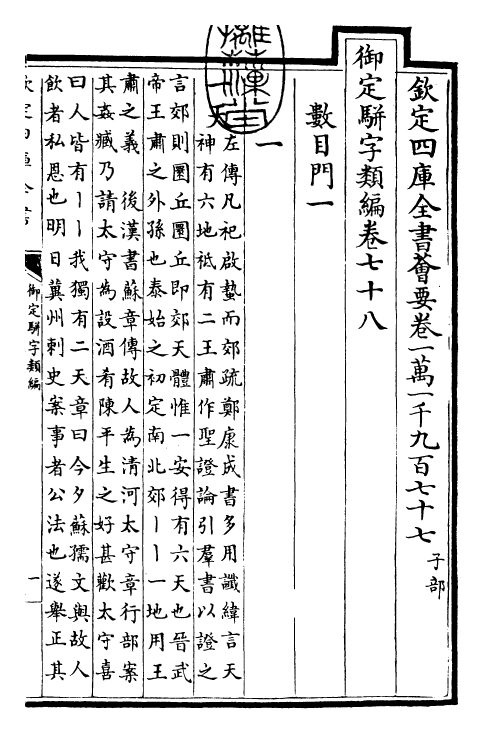 欽定四庫全書薈要卷一萬一千九百七十七 子部
御定騈字類編卷七十八
數目門一
一
天
左傳凡祀啟蟄而郊疏鄭康成書多用讖緯言天
神有六地祗有二王肅作聖證論引羣書以證之
言郊則圜丘圜丘即郊天體惟一安得有六天也晉武
帝王肅之外孫也泰始之初定南北郊丨丨一地用王
肅之義 後漢書蘇章傳故人為清河太守章行部案
其姦臧乃請太守為設酒肴陳平生之好甚歡太守喜
曰人皆有丨丨我獨有二天章曰今夕蘇孺文與故人
飲者私恩也明日冀州刺史案事者公法也遂舉正其
欽定四庫全書
御定騈字類編
一